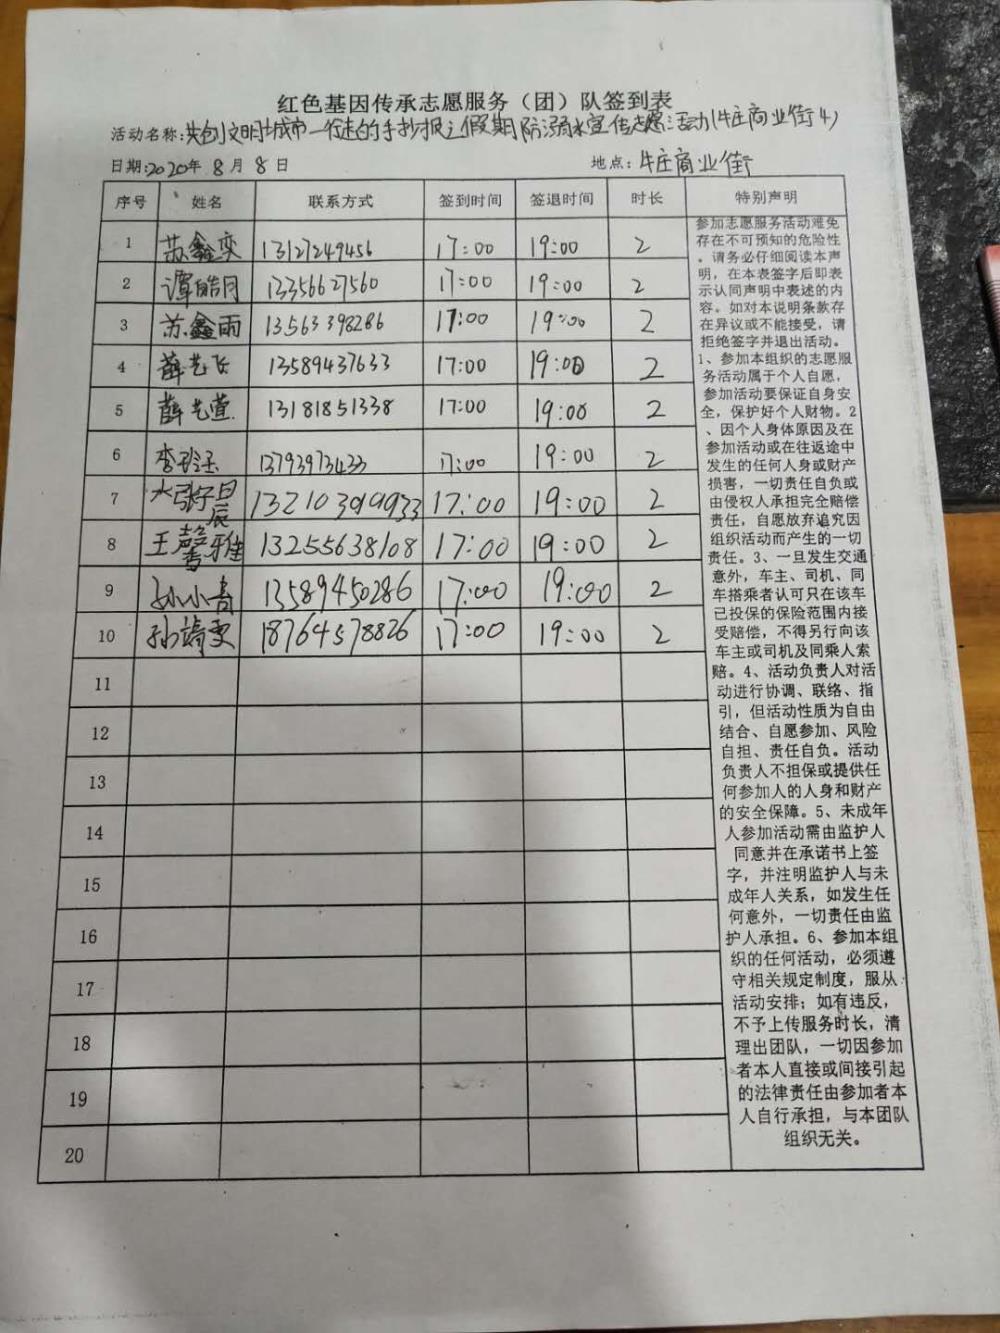 红色基因传承志愿服务（团）队签到表
活动名称:共创文明城市—行走的手抄报之假期防溺水宣传志愿活动(牛庄商业街4)
日期:2020年 8 月 8 日 地点: 牛庄商业街
序号 姓名 联系方式 签到时间 签退时间 时长 特别声明
1 苏鑫奕 13127249456 17:00 19:00 2
2 谭皓月 13356627560 17:00 19:00 2
3 苏鑫雨 13563398286 17:00 19:00 2
4 薛艺飞 13589437633 17:00 19:00 2
5 薛艺萱 13181851338 17:00 19:00 2
6 13793973433 17:00 19:00 2
7 张子晨 13210399933 17:00 19:00 2
8 王馨雅 13255638108 17:00 19:00 2
9 孙小 13589450286 17:00 19:00 2
10 孙靖雯 18764578826 17:00 19:00 2
11
12
13
14
15
16
17
18
19
20
参加志愿服务活动难免
存在不可预知的危险性
。请务必仔细阅读本声
明，在本表签字后即表
示认同声明中表述的内
容。如对本说明条款存
在异议或不能接受，请
拒绝签字并退出活动。
1、参加本组织的志愿服
务活动属于个人自愿，
参加活动要保证自身安
全，保护好个人财物。2
、因个人身体原因及在
参加活动或在往返途中
发生的任何人身或财产
损害，一切责任自负或
由侵权人承担完全赔偿
责任，自愿放弃追究因
组织活动而产生的一切
责任。3、一旦发生交通
意外，车主、司机、同
车搭乘者认可只在该车
已投保的保险范围内接
受赔偿，不得另行向该
车主或司机及同乘人索
赔。4、活动负责人对活
动进行协调、联络、指
引，但活动性质为自由
结合、自愿参加、风险
自担、责任自负。活动
负责人不担保或提供任
何参加人的人身和财产
的安全保障。5、未成年
人参加活动需由监护人
同意并在承诺书上签
字，并注明监护人与未
成年人关系，如发生任
何意外，一切责任由监
护人承担。6、参加本组
织的任何活动，必须遵
守相关规定制度，服从
活动安排；如有违反，
不予上传服务时长，清
理出团队，一切因参加
者本人直接或间接引起
的法律责任由参加者本
人自行承担，与本团队
组织无关。